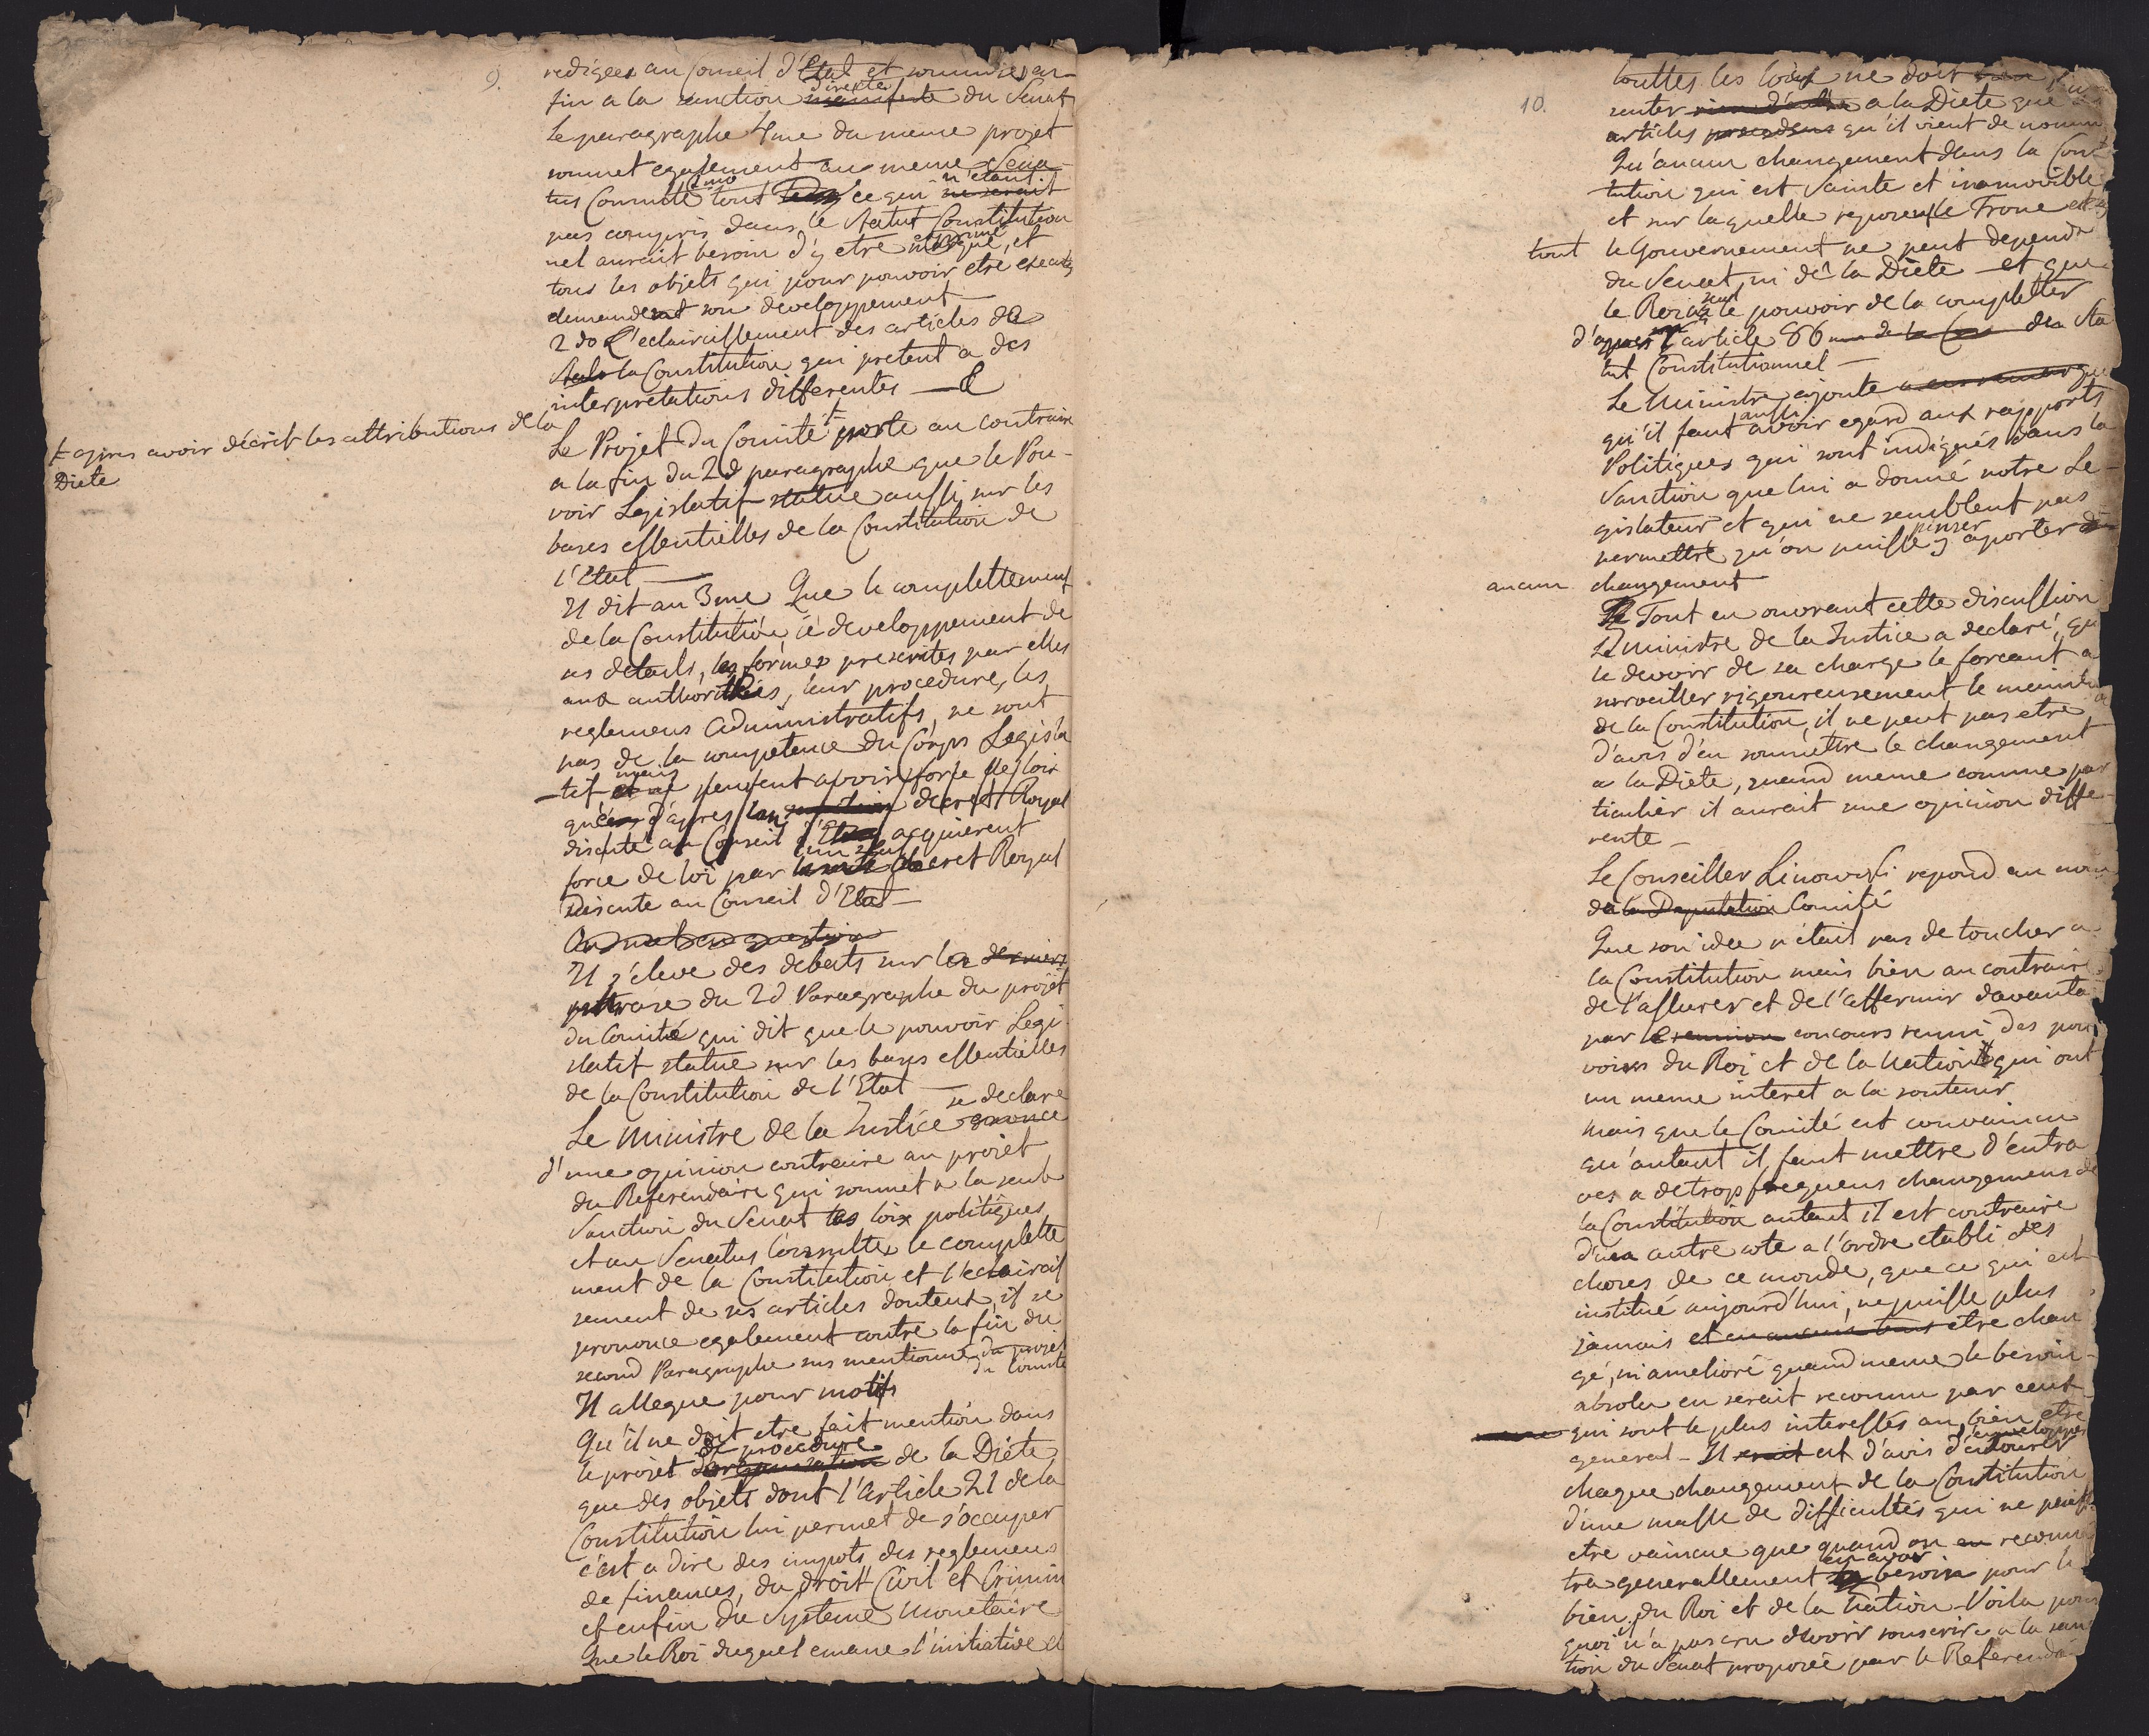 9.
redigées au Conseil d'Etat et soumises en-
fin a la sanction directe manifeste du Senat
Le paragraphe 4me du meme projet
soumet egalement au meme Sena-
tus Consulte 1mo tout ce qui n'étant ne serait
pas compris dans le Statut Constitution
nel aurait besoin d'y etre exprimé, et
tous les objets qui pour pouvoir etre executés
demandent son developpement —
2do L'eclaircissement des articles de
Stat la Constitution qui pretent a des
interpretations differentes —
Le Projet du Comité ⵜ porte au contraire
ⵜ apres avoir décrit les attributions de la
Diete
a la fin du 2d paragraphe que le Pou-
voir Legislatif statue aussi sur les
bases essentielles de la Constitution de
l'Etat —
Il dit au 3me Que le complettement
de la Constitution, le developpement de
ses details, les formes prescrites par elles
aux authorités, leur procedure, les
reglemens administratifs, ne sont
pas de la competence du Corps Legisla
-tif mais et ne peuvent avoir force de loix
qu'en d'apres decret Royal
discuté au Conseil d'Etat acquierent
force de loi par un seul decret Royal
discuté au Conseil d'Etat —
On met en question
Il s'eleve des debats sur la derniere
phrase du 2d Paragraphe du projet
du Comité qui dit que le pouvoir Legi-
slatif statue sur les bases essentielles
de la Constitution de l'Etat —
Le Ministre de la Justice se declare enonce
d'une opinion contraire au projet
du Referendaire qui soumet a la seule
Sanction du Senat les loix politiques
et au Senatus Consulte, le complette
ment de la Constitution et l'eclaircis
sement de ses articles douteux, il se
prononce egalement contre la fin du
second Paragraphe sus mentionné du projet
du Comité
Il allegue pour motifs
Qu'il ne doit etre fait mention dans
le projet de procedure d'organisation de la Diete
que des objets dont l'Article 21 de la
Constitution lui permet de s'occuper
c'est a dire des impots, des reglemens
de finances, du droit Civil et Crimin
et enfin du Systeme Monetaire
Que le Roi duquel emane l'initiative de
10.
touttes les loix ne doit rien
senter rien d'autre a la Diete que
articles precedens qu'il vient de nomm
Qu'aucun changement dans la Cons
titution qui est Sainte et inamovible
et sur laquelle reposent le Trone et
tout le Gouvernement ne peut depend
du Senat, ni de la Diete et que
le Roi a seul le pouvoir de la completter
d'apres l'article 86 me de la Con du Sta
tut Constitutionnel —
Le Ministre ajoute
qu'il faut aussi avoir egard aux rapports
Politiques qui sont indiqués dans la
Sanction que lui a donné notre Le-
gislateur et qui ne semblent pas
permettre qu'on puisse penser y aporter
aucun changement
Tout en ouvrant cette discussion
Le Ministre de la Justice a declaré, qu
le devoir de sa charge le forcant a
surveiller rigoureusement le maintien
de la Constitution, il ne peut pas etre
d'avis d'en soumettre le changement
a la Diete, quand meme comme par
ticulier il aurait une opinion diffe-
rente —
Le Conseiller Linowski repond au nom
de la Deputation Comité
Que son idee n'était pas de toucher a
la Constitution mais bien au contraire
de l'assurer et de l'affermir davanta
par la reunion concours reuni des pou
voirs du Roi et de la Nation qui ont
un meme interet a la soutenir
Mais que le Comité est convaincu
qu'autant il faut mettre d'entra
ves a de trop frequens changemens de
la Constitution autant il est contraire
d'un autre coté a l'ordre etabli des
choses de ce monde, que ce qui est
institué aujourd'hui, ne puisse plus
jamais et en aucun tems etre chan
gé, ni amelioré quand meme le besoin
absolu en serait reconnu par ceux
qui sont le plus interessés au bien etre
general — Il est d'avis d'envelopper d'entourer
chaque changement de la Constitution
d'une masse de difficultés qui ne puisse
etre vaincue que quand on en reconnai
tra generallement en avoir besoin pour le
bien du Roi et de la Nation. Voila pour
quoi il n'a pas cru devoir souscrire a la sanc
tion du Senat proposée par le Referendai